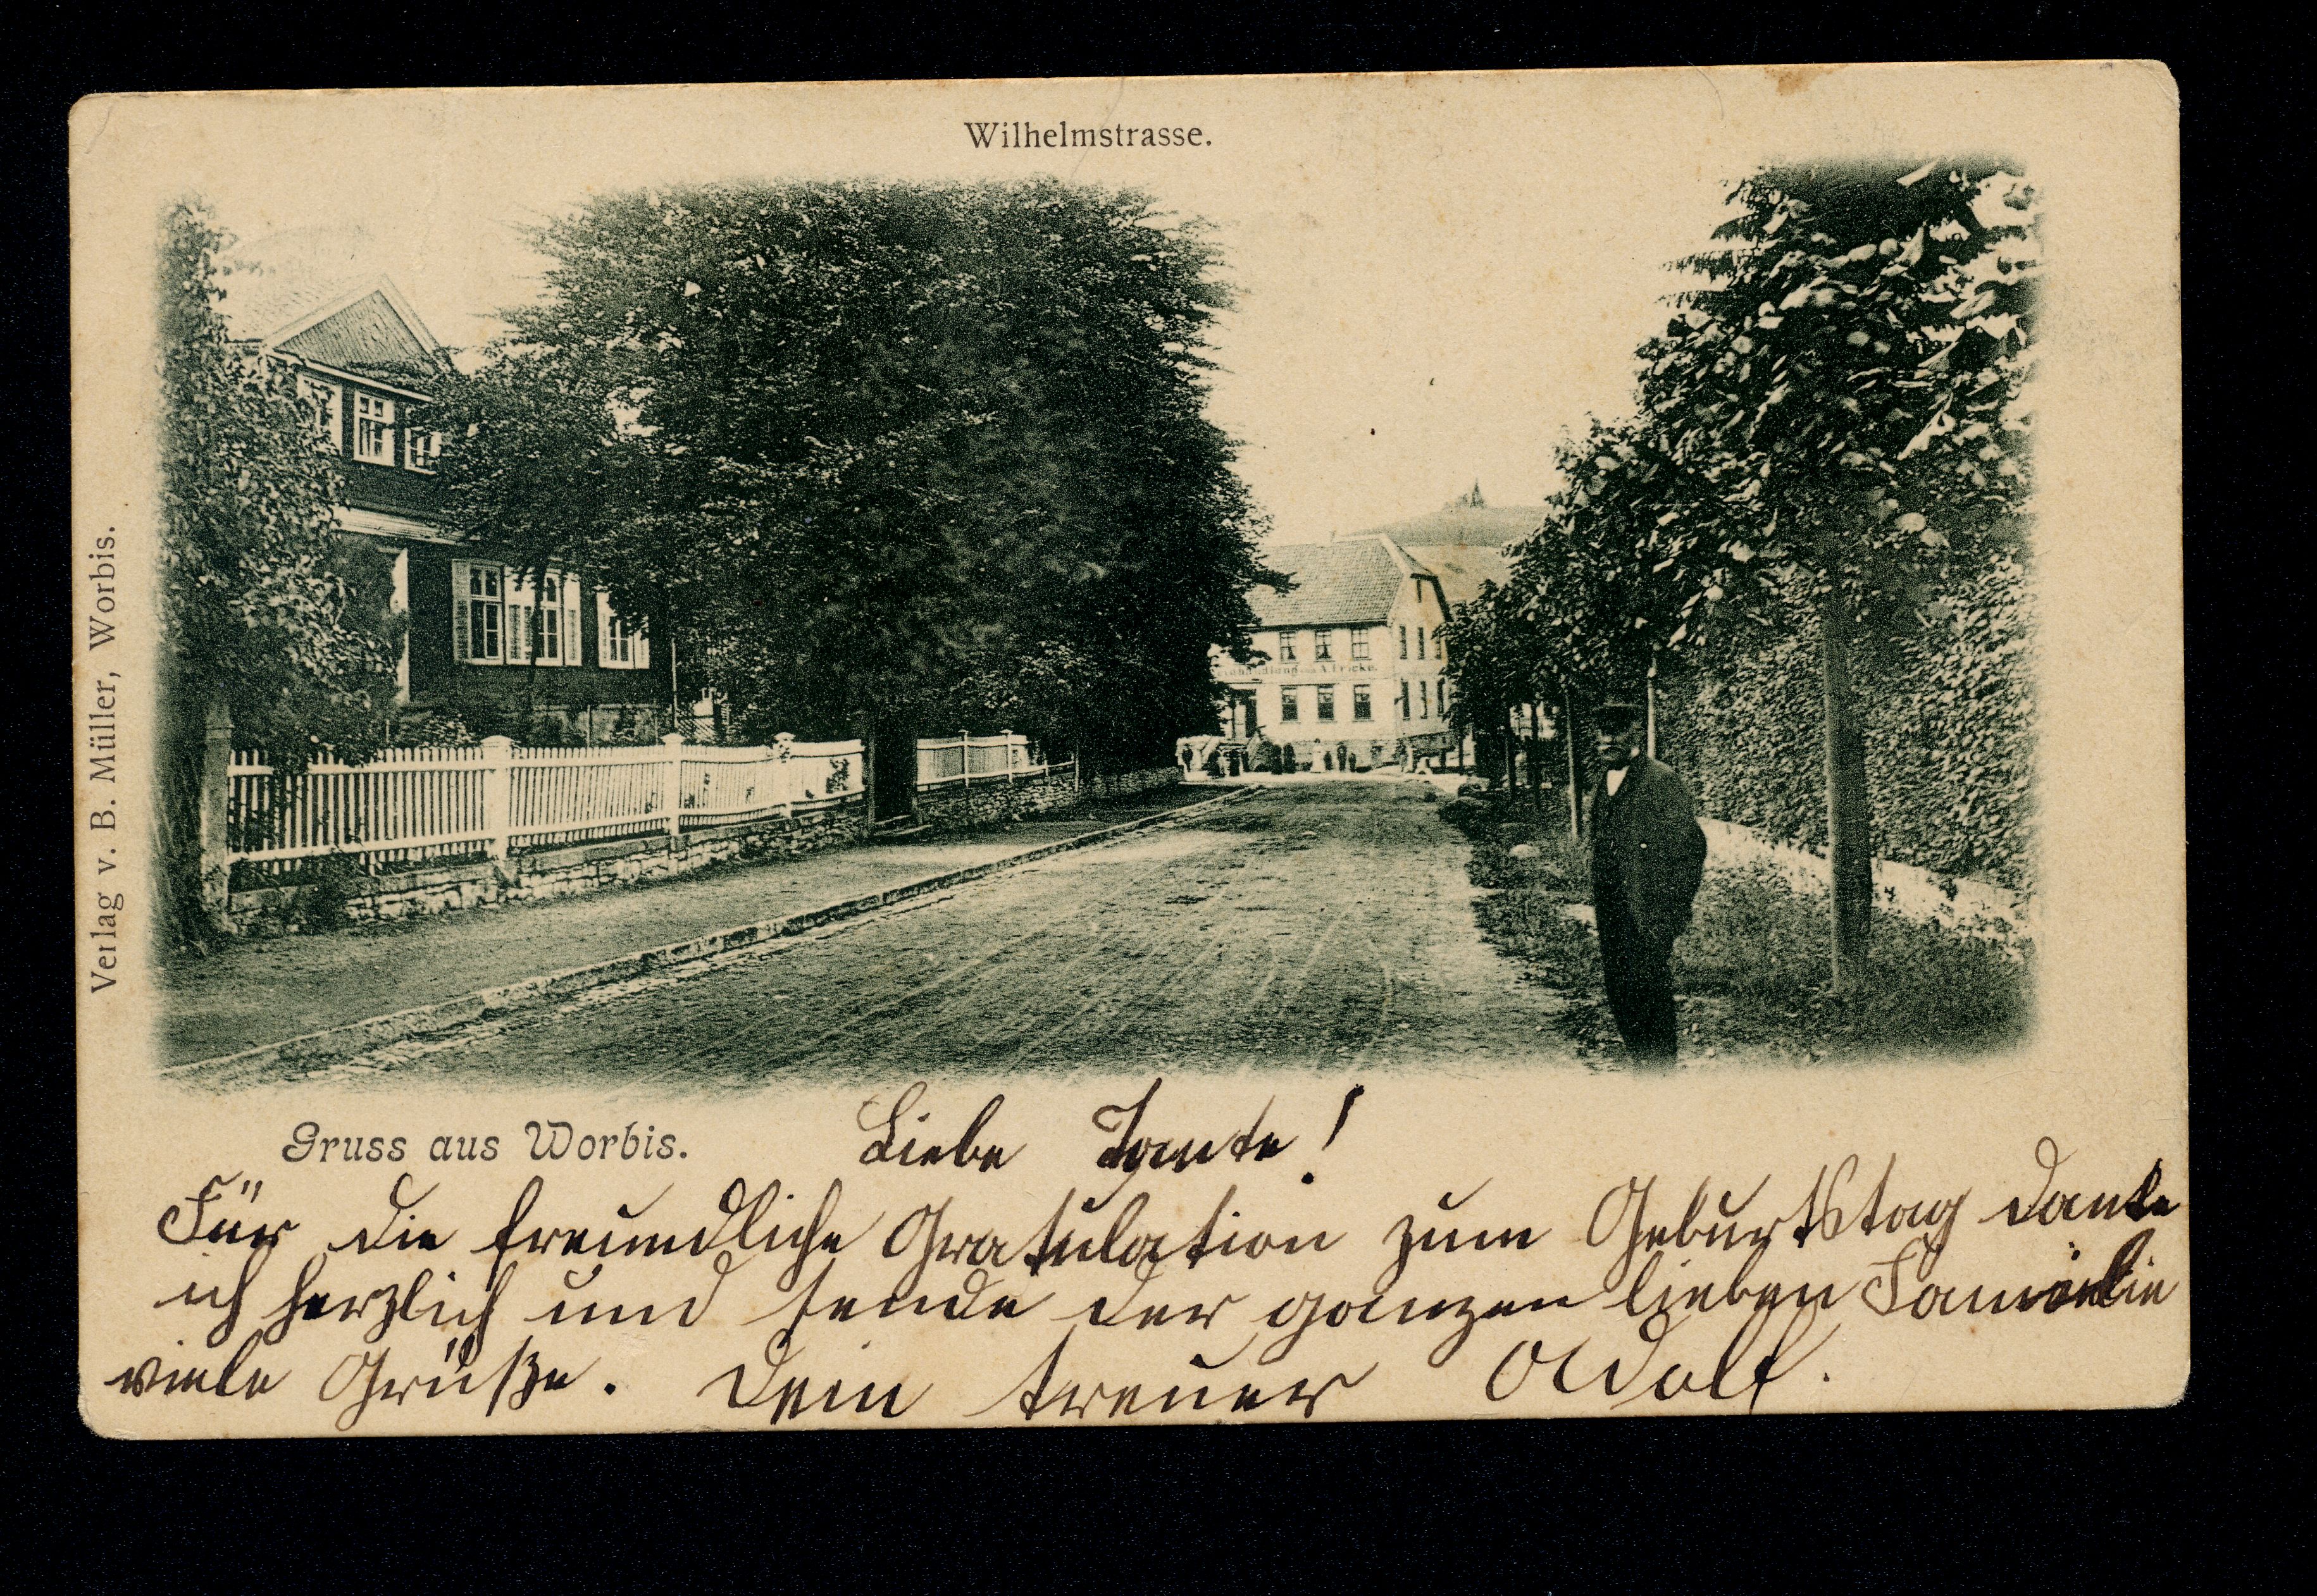 Wilhelmstrasse.
Verlag v. B. Müller, Worbis.
Gruss aus Worbis.
Liebe Tante!
Für die freundliche Gratulation zum Geburtstag danke
ich herzlich und sende der ganzen lieben Familie
viele Grüße. Dein treuer Adolf.